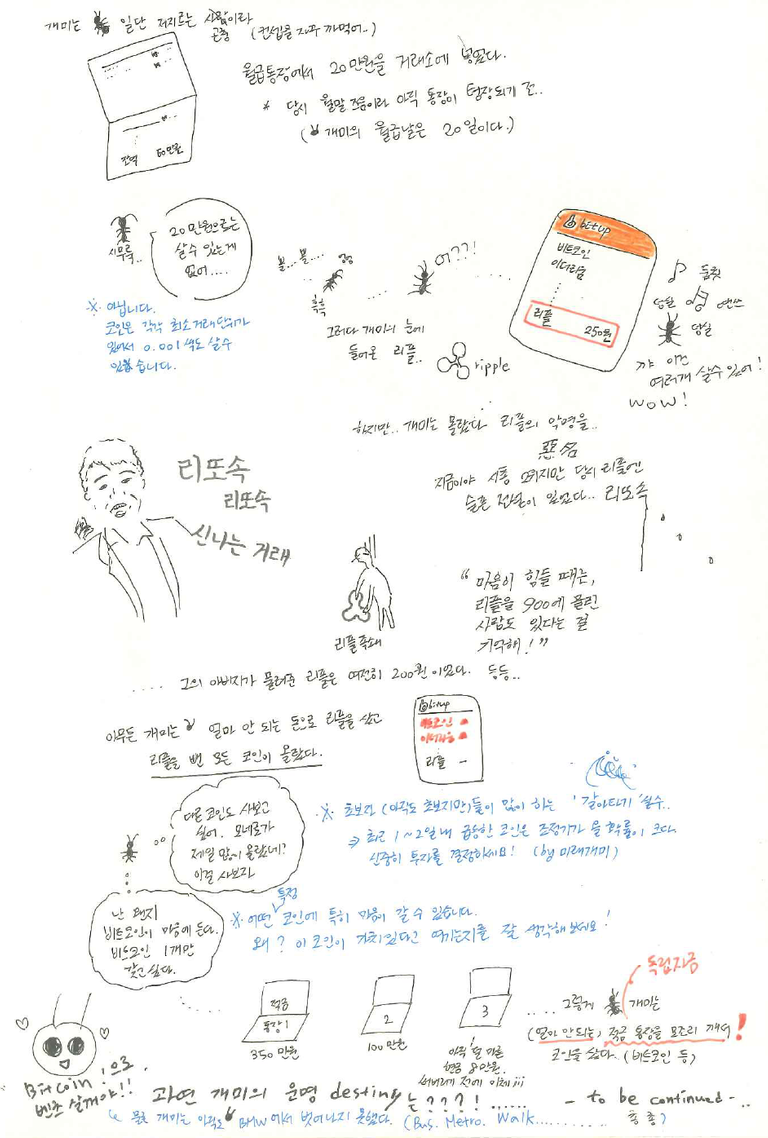 개미는 일단 저지르는 사람이라
곤충 (컨셉을 자꾸 까먹어..)
월급통장에서 20만원을 거래소에 넣었다.
* 당시 월말 즈음이라 아직 통장이 텅장되기 전..
( 개미의 월급날은 20일이다.)
잔액 60만원
20만원으로는
살수 있는게
없어....
시무룩..
※ 아닙니다.
코인은 각각 최소거래단위가
있어서 0.001 씩도 살수
있습니다.
뽈... 뽈...
흑흑
어???!
그러다 개미의 눈에
들어온 리플..
ripple
bitup
비트코인
이더리움
리플 250원
둠칫
덩실
덩실
꺄 이건
여러개 살수 있어!
WOW!
하지만.. 개미는 몰랐다 리플의 악명을..
惡名
지금이야 시총 이지만 당시 리플엔
슬픈 전설이 있었다... 리또속
리또속
리또속
신나는 거래
리플족쇄
"마음이 힘들 때는,
리플을 900에 물린
사람도 있다는 걸
기억해!"
.... 그의 아버지가 물려준 리플은 여전히 200원이었다. 등등..
아무튼 개미는 얼마 안 되는 돈으로 리플을 샀고
리플을 뺀 모든 코인이 올랐다.
bitup
비트코인
이더리움
리플 -
다른 코인도 사보고
싶어. 모네로가
제일 많이 올랐네?
이걸 사보자
※ 초보자 (아직도 초보지만)들이 많이 하는 '갈아타기' 실수..
⇒ 최근 1~2일내 급등한 코인은 조정기가 올 확률이 크다
신중히 투자를 결정하세요! (by 미래개미)
난 왠지
비트코인이 마음에 든다.
비트코인 1개만
갖고 싶다.
특정
※ 어떤 코인에 특히 마음이 갈 수 있습니다.
왜? 이 코인이 가치있다고 여기는지를 잘 생각해보세요!
적금
통장1
350만원
2
100만원
3
아직 한 달
현금 8만원.
.... 그렇게 개미는
독립자금
(얼마 안되는) 적금 통장을 모조리 깨서!
코인을 샀다. (비트코인 등)
Bitcoin 으로
벤츠 살게야!!
과연 개미의 운명 destiny 는???!...... - to be continued -..
물론 개미는 아직도 BMW에서 벗어나지 못했다. (Bus. Metro. Walk.......... 총총)